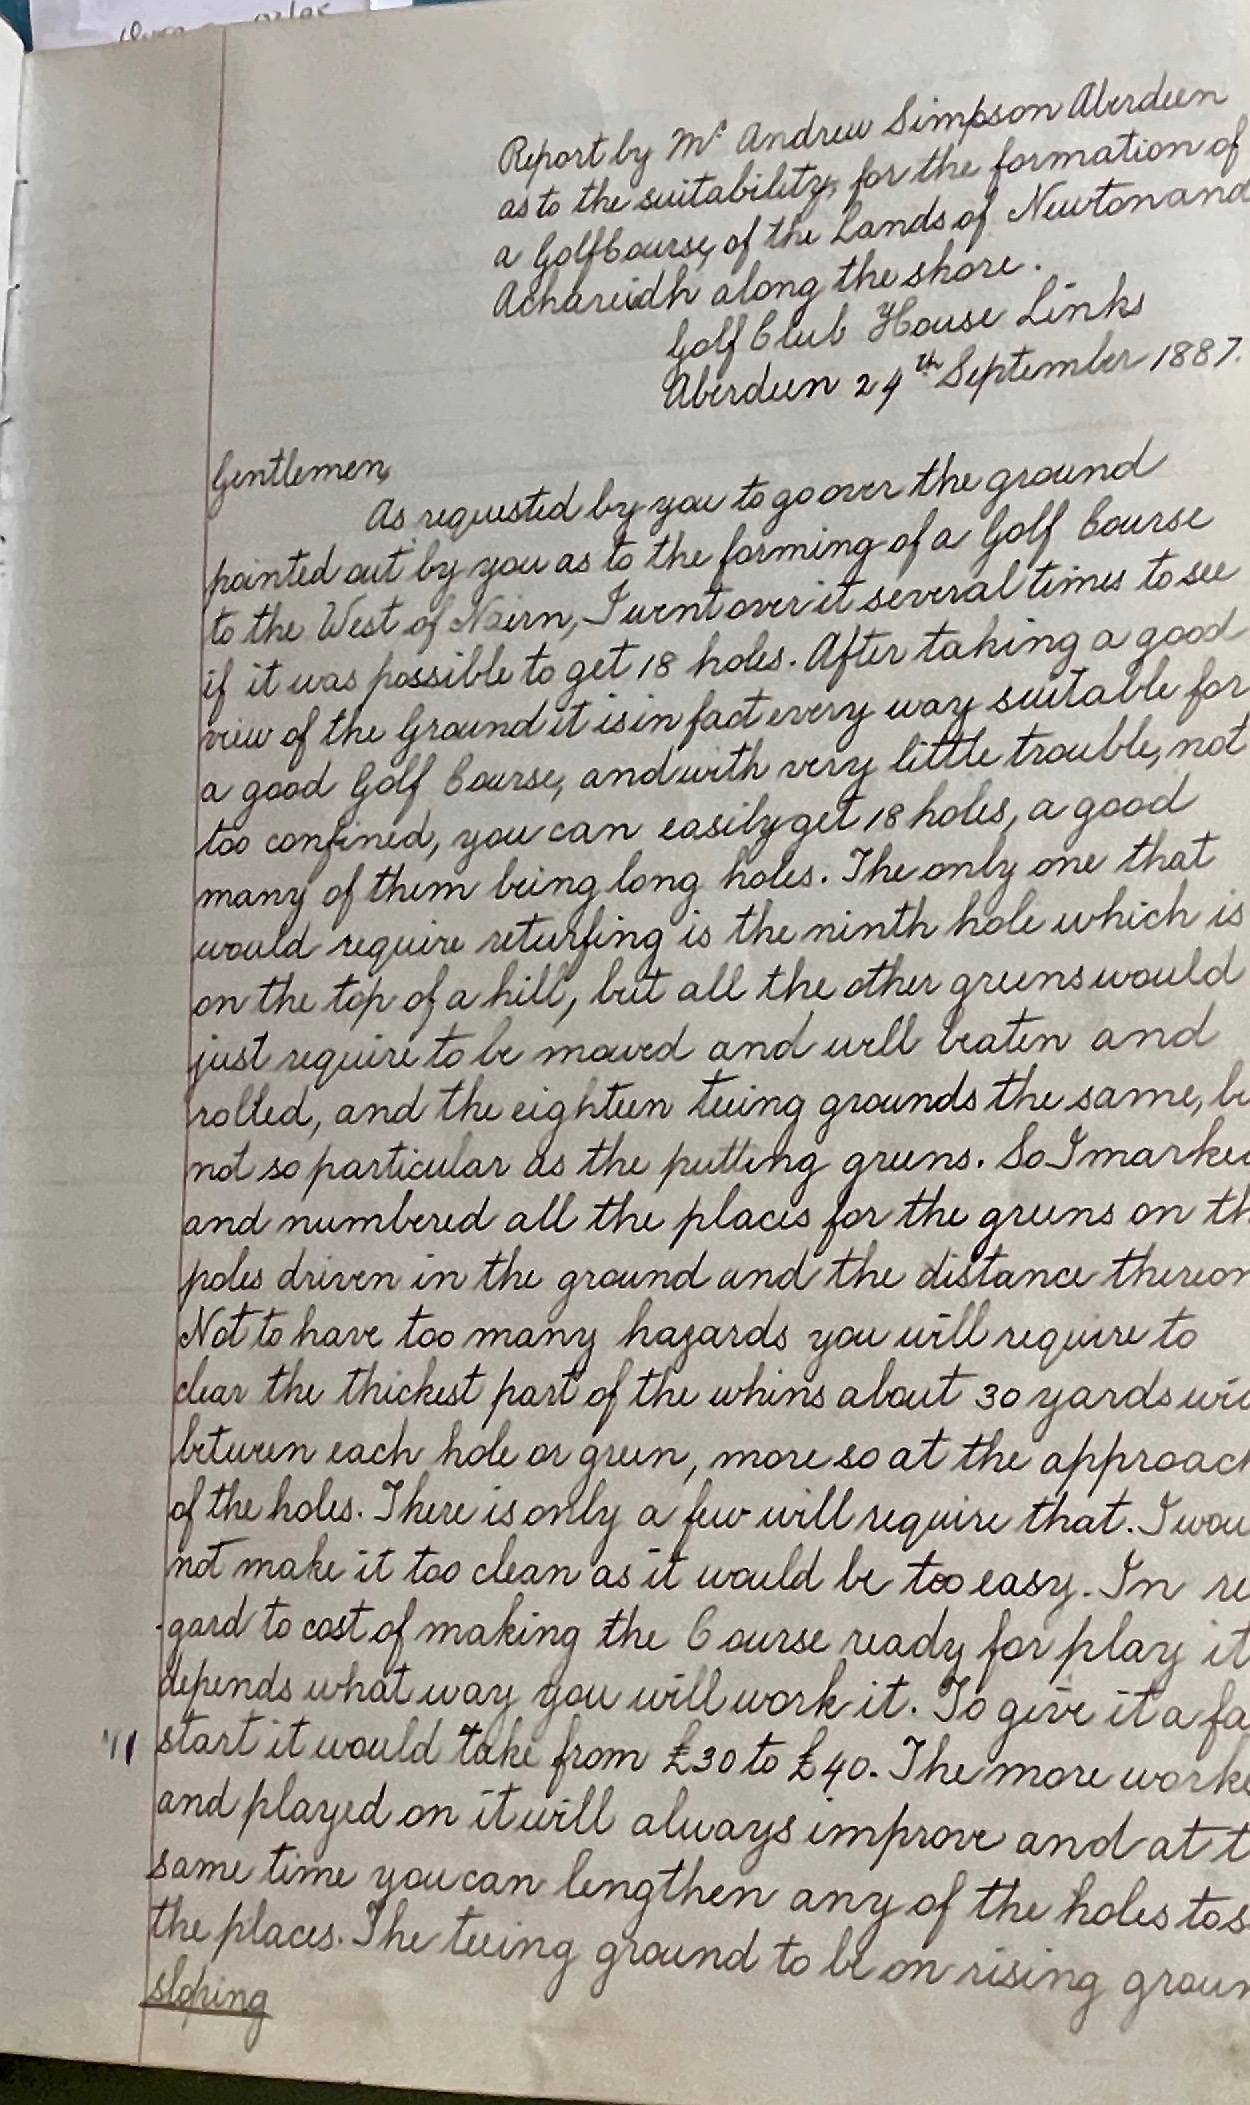 Report by Mr Andrew Simpson Aberdeen
as to the suitability, for the formation of
a Golf Course, of the Lands of Newton and
Achareidh along the shore.
Golf Club House Links
Aberdeen 24th September 1887.
Gentlemen,
As requested by you to go over the ground
pointed out by you as to the forming of a Golf Course
to the West of Nairn, I went over it several times to see
if it was possible to get 18 holes. After taking a good
view of the Ground it is in fact every way suitable for
a good Golf Course, and with very little trouble, not
too confined, you can easily get 18 holes, a good
many of them being long holes. The only one that
would require returfing is the ninth hole which is
on the top of a hill, but all the other greens would
just require to be mowed and well beaten and
rolled, and the eighteen teeing grounds the same, b
not so particular as the putting greens. So I marke
and numbered all the places for the greens on th
poles driven in the ground and the distance thereon
Not to have too many hazards you will require to
clear the thickest part of the whins about 30 yards wi
between each hole or green, more so at the approach
of the holes. There is only a few will require that. I wou
not make it too clean as it would be too easy. In re
-gard to cost of making the Course ready for play it
depends what way you will work it. To give it a fa
start it would take from £30 to £40. The more worke
and played on it will always improve and at t
same time you can lengthen any of the holes to s
the places. The teeing ground to be on rising groun
sloping